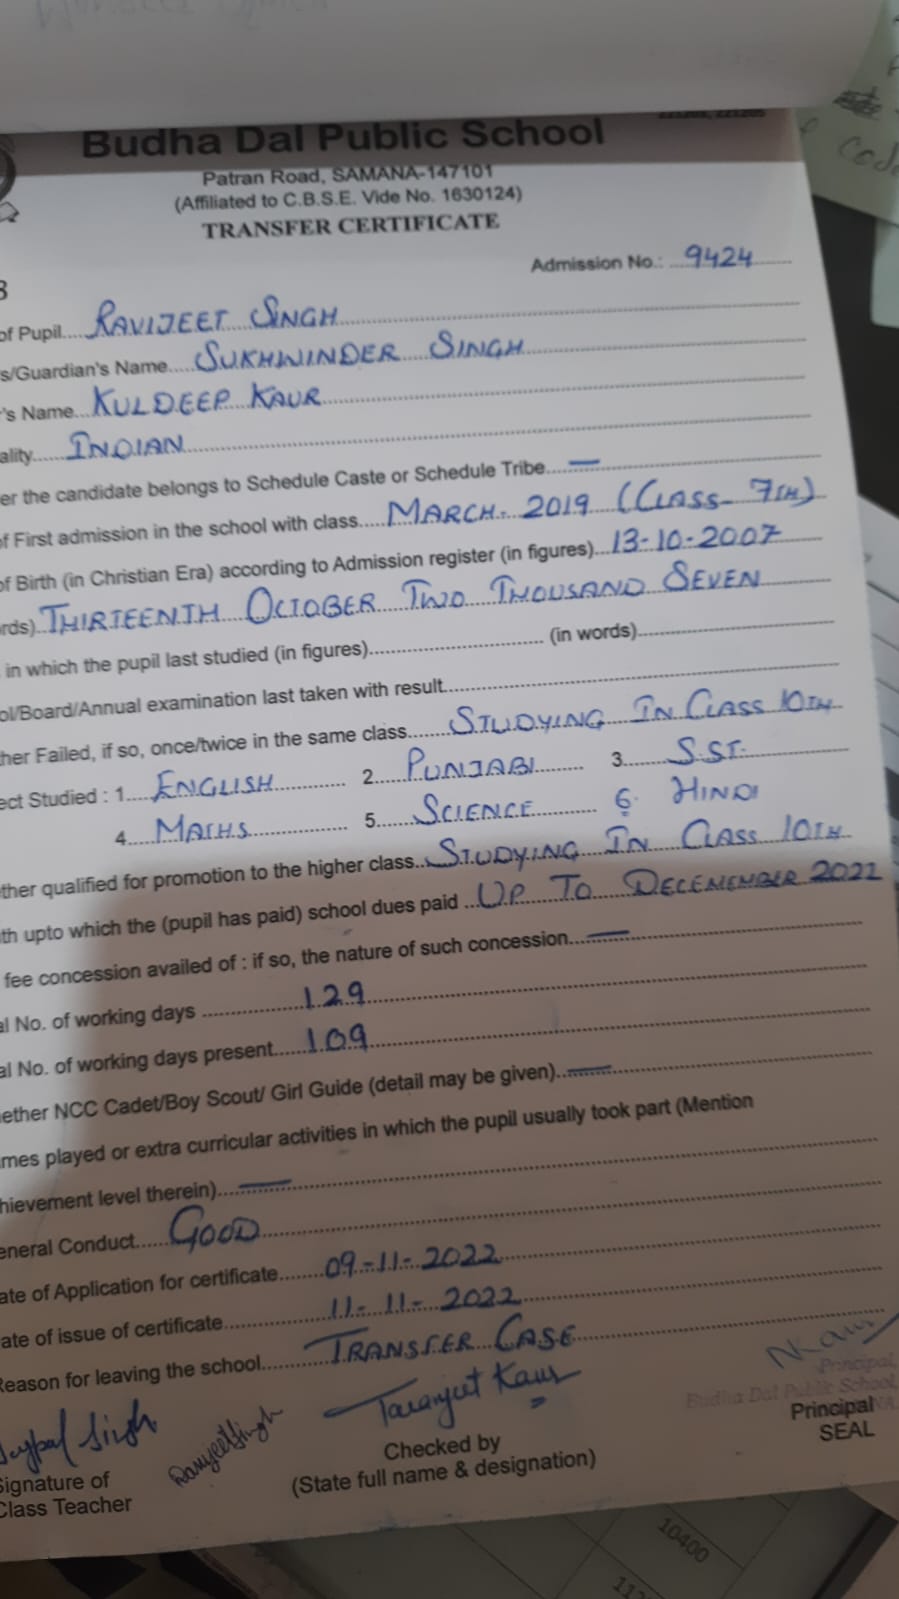 Budha Dal Public School
Patran Road, SAMANA-147101
(Affiliated to C.B.S.E. Vide No. 1630124)
TRANSFER CERTIFICATE
Admission No.: 9424
of Pupil RAVIJEET SINGH
s/Guardian's Name SUKHWINDER SINGH
's Name KULDEEP KAUR
ality INDIAN
er the candidate belongs to Schedule Caste or Schedule Tribe —
of First admission in the school with class MARCH- 2019 (CLASS- 7TH)
of Birth (in Christian Era) according to Admission register (in figures) 13-10-2007
rds) THIRTEENTH OCTOBER TWO THOUSAND SEVEN
in which the pupil last studied (in figures) (in words)
ol/Board/Annual examination last taken with result
her Failed, if so, once/twice in the same class STUDYING IN CLASS 10TH
ect Studied : 1 ENGLISH 2 PUNJABI 3 S.ST.
4 MATHS 5 SCIENCE 6 HINDI
ther qualified for promotion to the higher class STUDYING IN CLASS 10TH
th upto which the (pupil has paid) school dues paid UP TO DECEMEMBER 2022
fee concession availed of : if so, the nature of such concession —
al No. of working days 129
al No. of working days present 109
ether NCC Cadet/Boy Scout/ Girl Guide (detail may be given) —
mes played or extra curricular activities in which the pupil usually took part (Mention
hievement level therein) —
eneral Conduct GOOD
ate of Application for certificate 09-11-2022
ate of issue of certificate 11-11-2022
Reason for leaving the school TRANSFER CASE
Singh Taranjeet Kaur
Principal,
Budha Dal Public School,
Signature of
Class Teacher
Checked by
(State full name & designation)
Principal
SEAL
10400